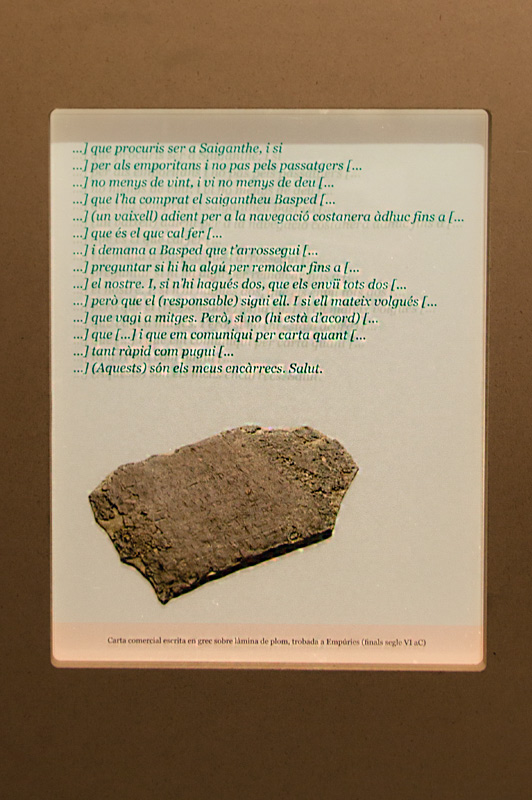 ...] que procuris ser a Saiganthe, i si
...] per als emporitans i no pas pels passatgers [...
...] no menys de vint, i vi no menys de deu [...
...] que l'ha comprat el saigantheu Basped [...
...] (un vaixell) adient per a la navegació costanera àdhuc fins a [...
...] que és el que cal fer [...
...] i demana a Basped que t'arrossegui [...
...] preguntar si hi ha algú per remolcar fins a [...
...] el nostre. I, si n'hi hagués dos, que els enviï tots dos [...
...] però que el (responsable) sigui ell. I si ell mateix volgués [...
...] que vagi a mitges. Però, si no (hi està d'acord) [...
...] que [...] i que em comuniqui per carta quant [...
...] tant ràpid com pugui [...
...] (Aquests) són els meus encàrrecs. Salut.
Carta comercial escrita en grec sobre làmina de plom, trobada a Empúries (finals segle VI aC)